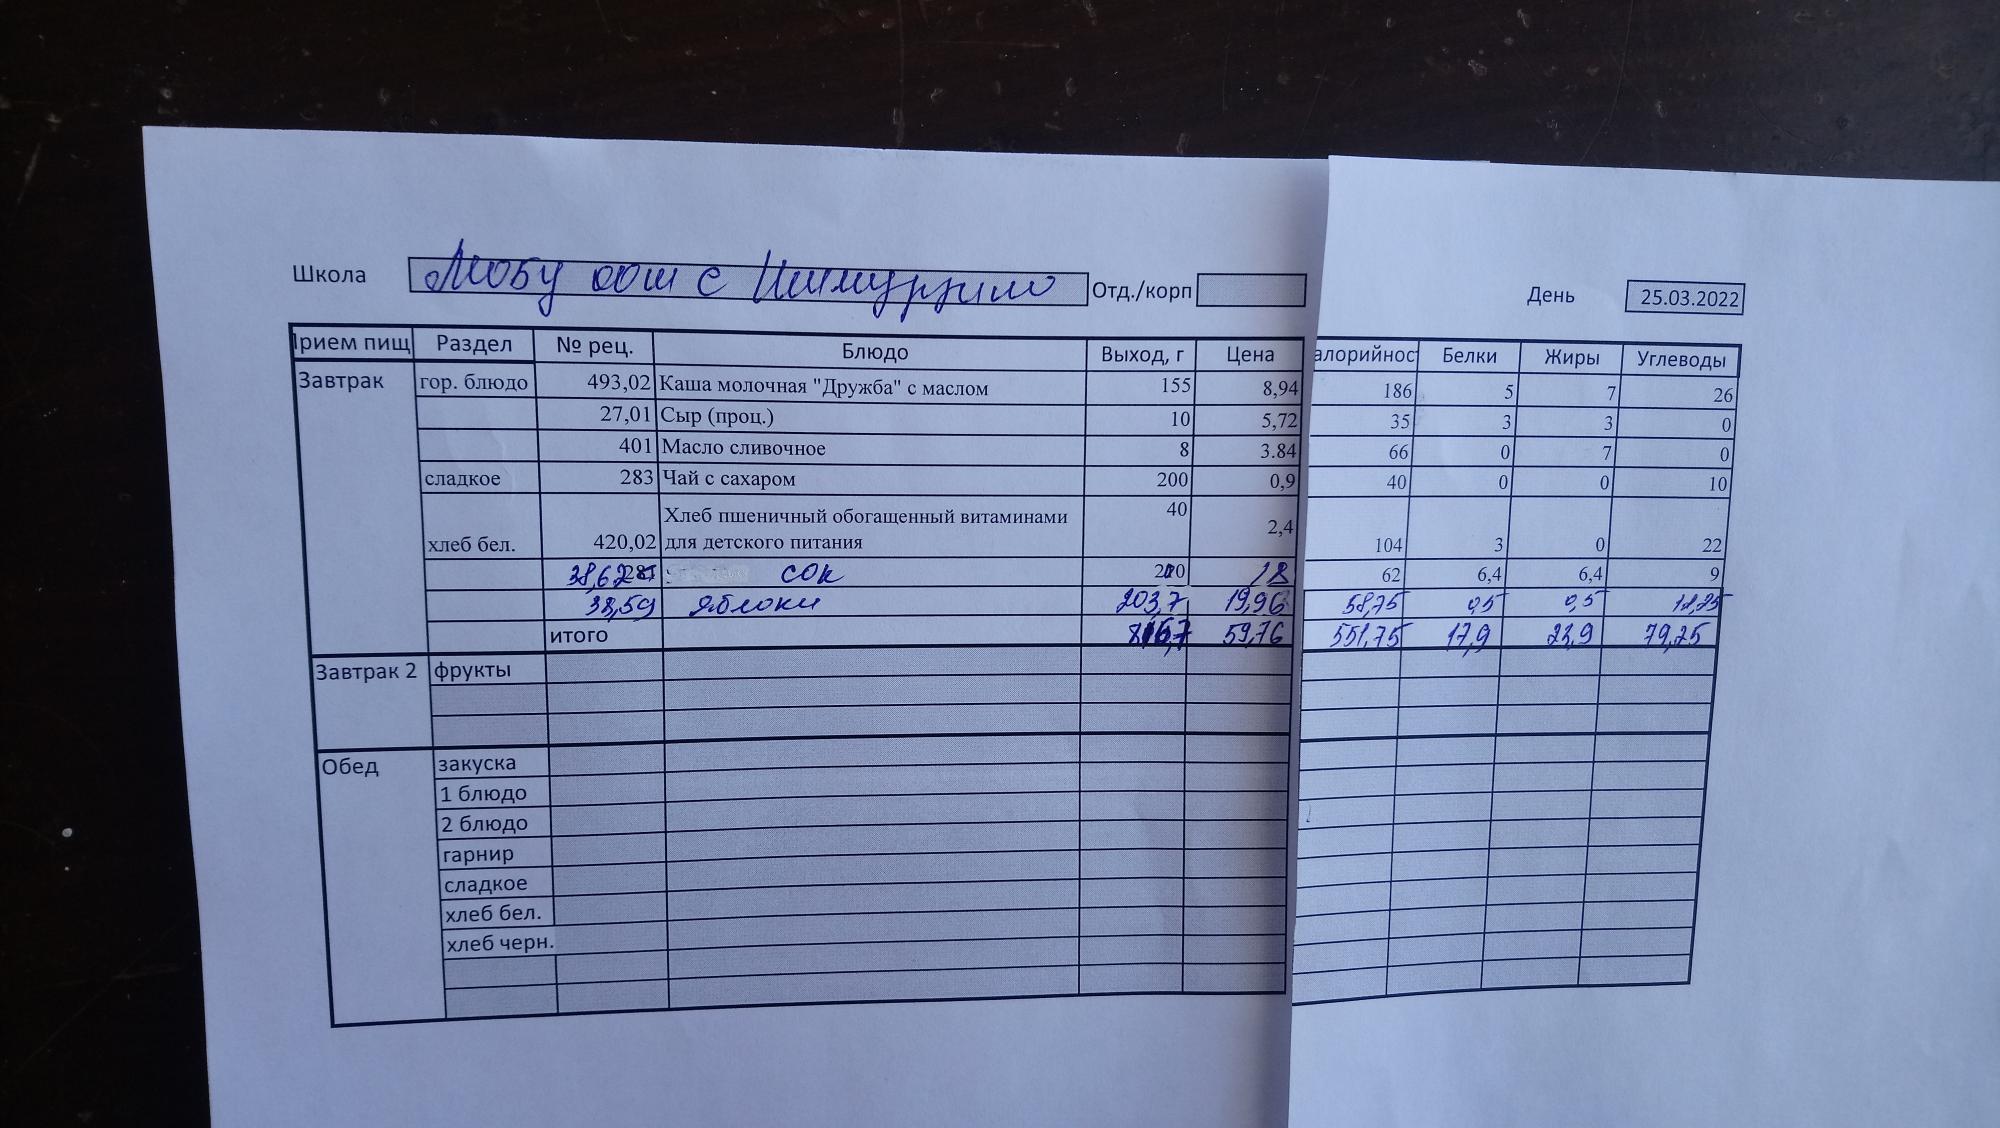 Школа МОБУ СОШ с Отд./корп День 25.03.2022
Прием пищ Раздел № рец. Блюдо Выход, г Цена алорийнос Белки Жиры Углеводы
Завтрак гор. блюдо 493,02 Каша молочная "Дружба" с маслом 155 8,94 186 5 7 26
27,01 Сыр (проц.) 10 5,72 35 3 3 0
401 Масло сливочное 8 3.84 66 0 7 0
сладкое 283 Чай с сахаром 200 0,9 40 0 0 10
Хлеб пшеничный обогащенный витаминами 40
хлеб бел. 420,02 для детского питания 2,4 104 3 0 22
38,62 сок 200 18 62 6,4 6,4 9
38,59 яблоки 203,7 19,96 58,75 0,5 0,5 12,25
итого 816,7 59,76 551,75 17,9 23,9 79,25
Завтрак 2 фрукты
Обед закуска
1 блюдо
2 блюдо
гарнир
сладкое
хлеб бел.
хлеб черн.